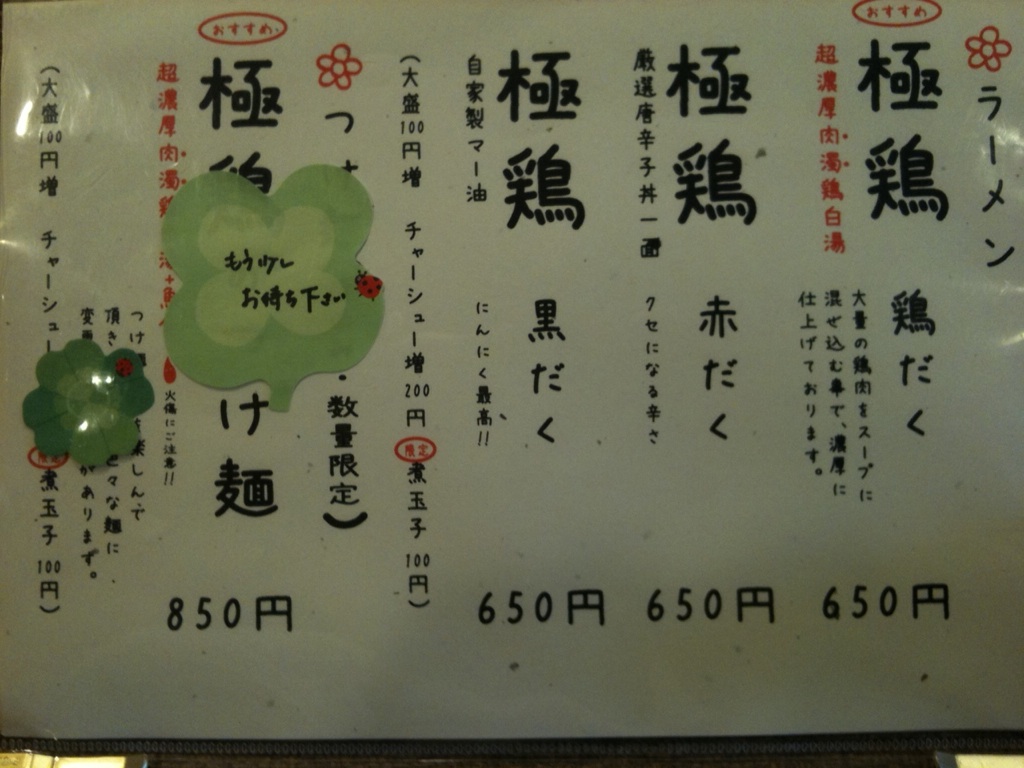 ラーメン
おすすめ
極鶏 鶏だく 650円
超濃厚肉濁鶏白湯
大量の鶏肉をスープに
混ぜ込む事で、濃厚に
仕上げております。
極鶏 赤だく 650円
厳選唐辛子丼一面
クセになる辛さ
極鶏 黒だく 650円
自家製マー油
にんにく最高!!
(大盛100円増 チャーシュー増200円 限定 煮玉子100円)
つ
数量限定)
おすすめ
極鶏 け麺 850円
超濃厚肉濁鶏
火傷にご注意!!
つけ 楽しんで
頂き 々な麺に
変更 があります。
(大盛100円増 チャーシュー 限定 煮玉子100円)
もう少し
お待ち下さい